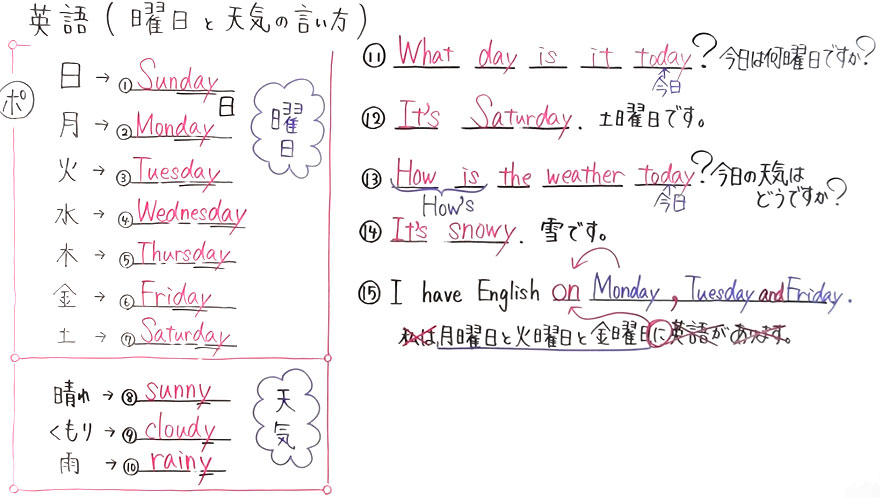 英語(曜日と天気の言い方)
ポ
日→①Sunday
日
月→②Monday
火→③Tuesday
水→④Wednesday
木→⑤Thursday
金→⑥Friday
土→⑦Saturday
曜日
晴れ→⑧sunny
くもり→⑨cloudy
雨→⑩rainy
天気
⑪What day is it today? 今日は何曜日ですか?
今日
⑫It's Saturday. 土曜日です。
⑬How is the weather today? 今日の天気は
どうですか?
How's
今日
⑭It's snowy. 雪です。
⑮I have English on Monday, Tuesday and Friday.
私は月曜日と火曜日と金曜日に英語があります。